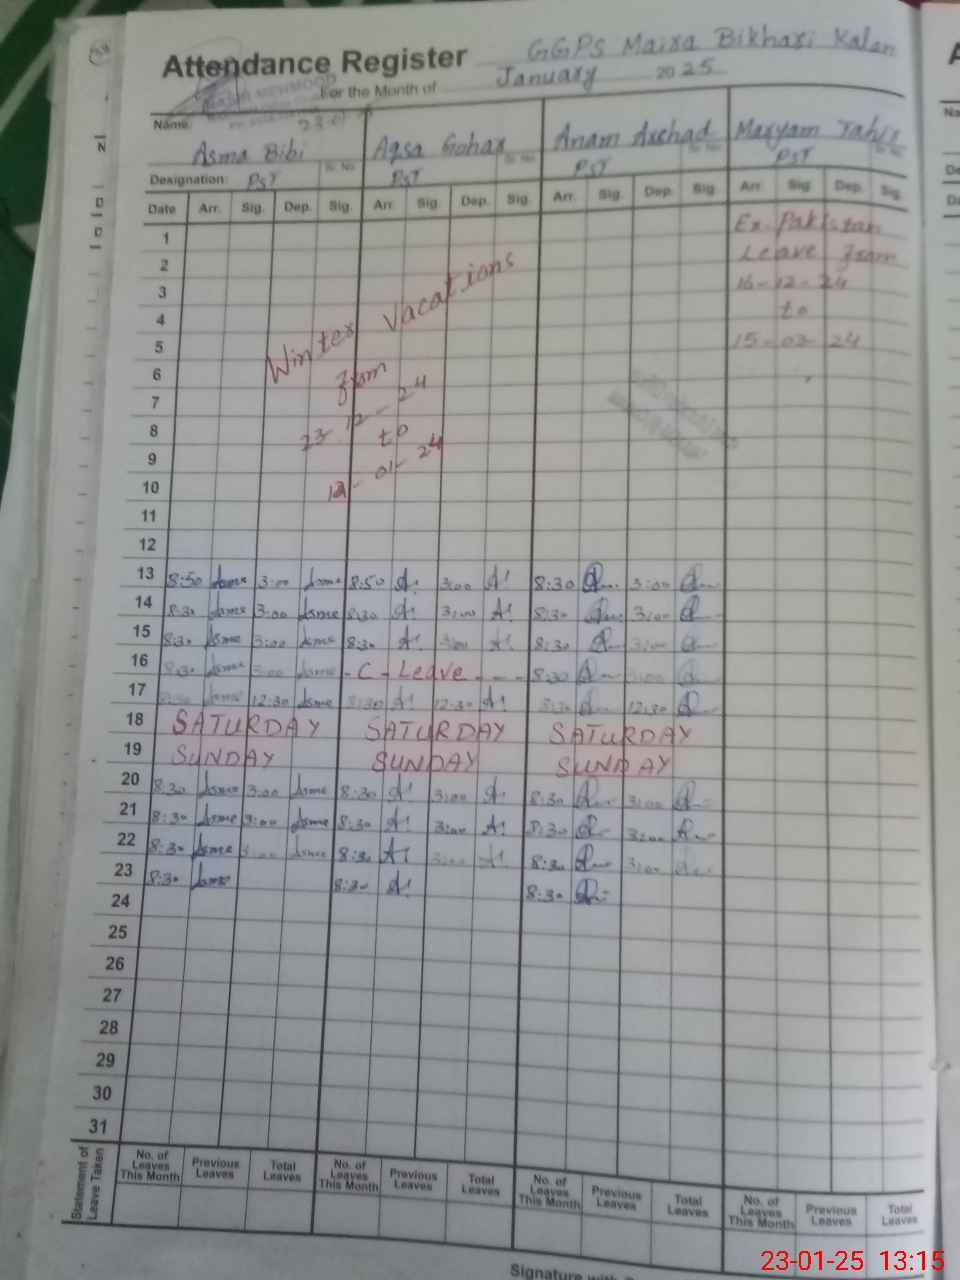 Attendance Register GGPS Maira Bikhari Kalan
For the Month of January 2025
Name: Asma Bibi Aqsa Gohar Anam Arshad Maryam Tahir
Designation: PST PST PST PST
Date Arr. Sig. Dep. Sig. Arr. Sig. Dep. Sig. Arr. Sig. Dep. Sig Arr. Sig Dep. Sig.
1 Ex. Pakistan
2 Leave From
3 16-12-24
4 to
5 15-03-24
6
7
8
9
10
11
12
Winter Vacations
from
23-12-24
to
12-01-24
13 8:50 Asma 3:00 Asma 8:50 A! 3:00 A! 8:30 3:00
14 8:30 Asma 3:00 Asma 8:30 A! 3:00 A! 8:30 3:00
15 8:30 Asma 3:00 Asma 8:30 A! 3:00 A! 8:30 3:00
16 8:30 Asma 3:00 Asma - C - Leave - - - 8:30 3:00
17 8:30 Asma 12:30 Asma 8:30 A! 12:30 A! 8:30 12:30
18 SATURDAY SATURDAY SATURDAY
19 SUNDAY SUNDAY SUNDAY
20 8:30 Asma 3:00 Asma 8:30 A! 3:00 A! 8:30 3:00
21 8:30 Asma 3:00 Asma 8:30 A! 3:00 A! 8:30 3:00
22 8:30 Asma 3:00 Asma 8:30 A! 3:00 A! 8:30 3:00
23 8:30 Asma 8:30 A! 8:30
24
25
26
27
28
29
30
31
Statement of Leave Taken
No. of Leaves This Month Previous Leaves Total Leaves No. of Leaves This Month Previous Leaves Total Leaves No. of Leaves This Month Previous Leaves Total Leaves No. of Leaves This Month Previous Leaves Total Leaves
Signature with
23-01-25 13:15